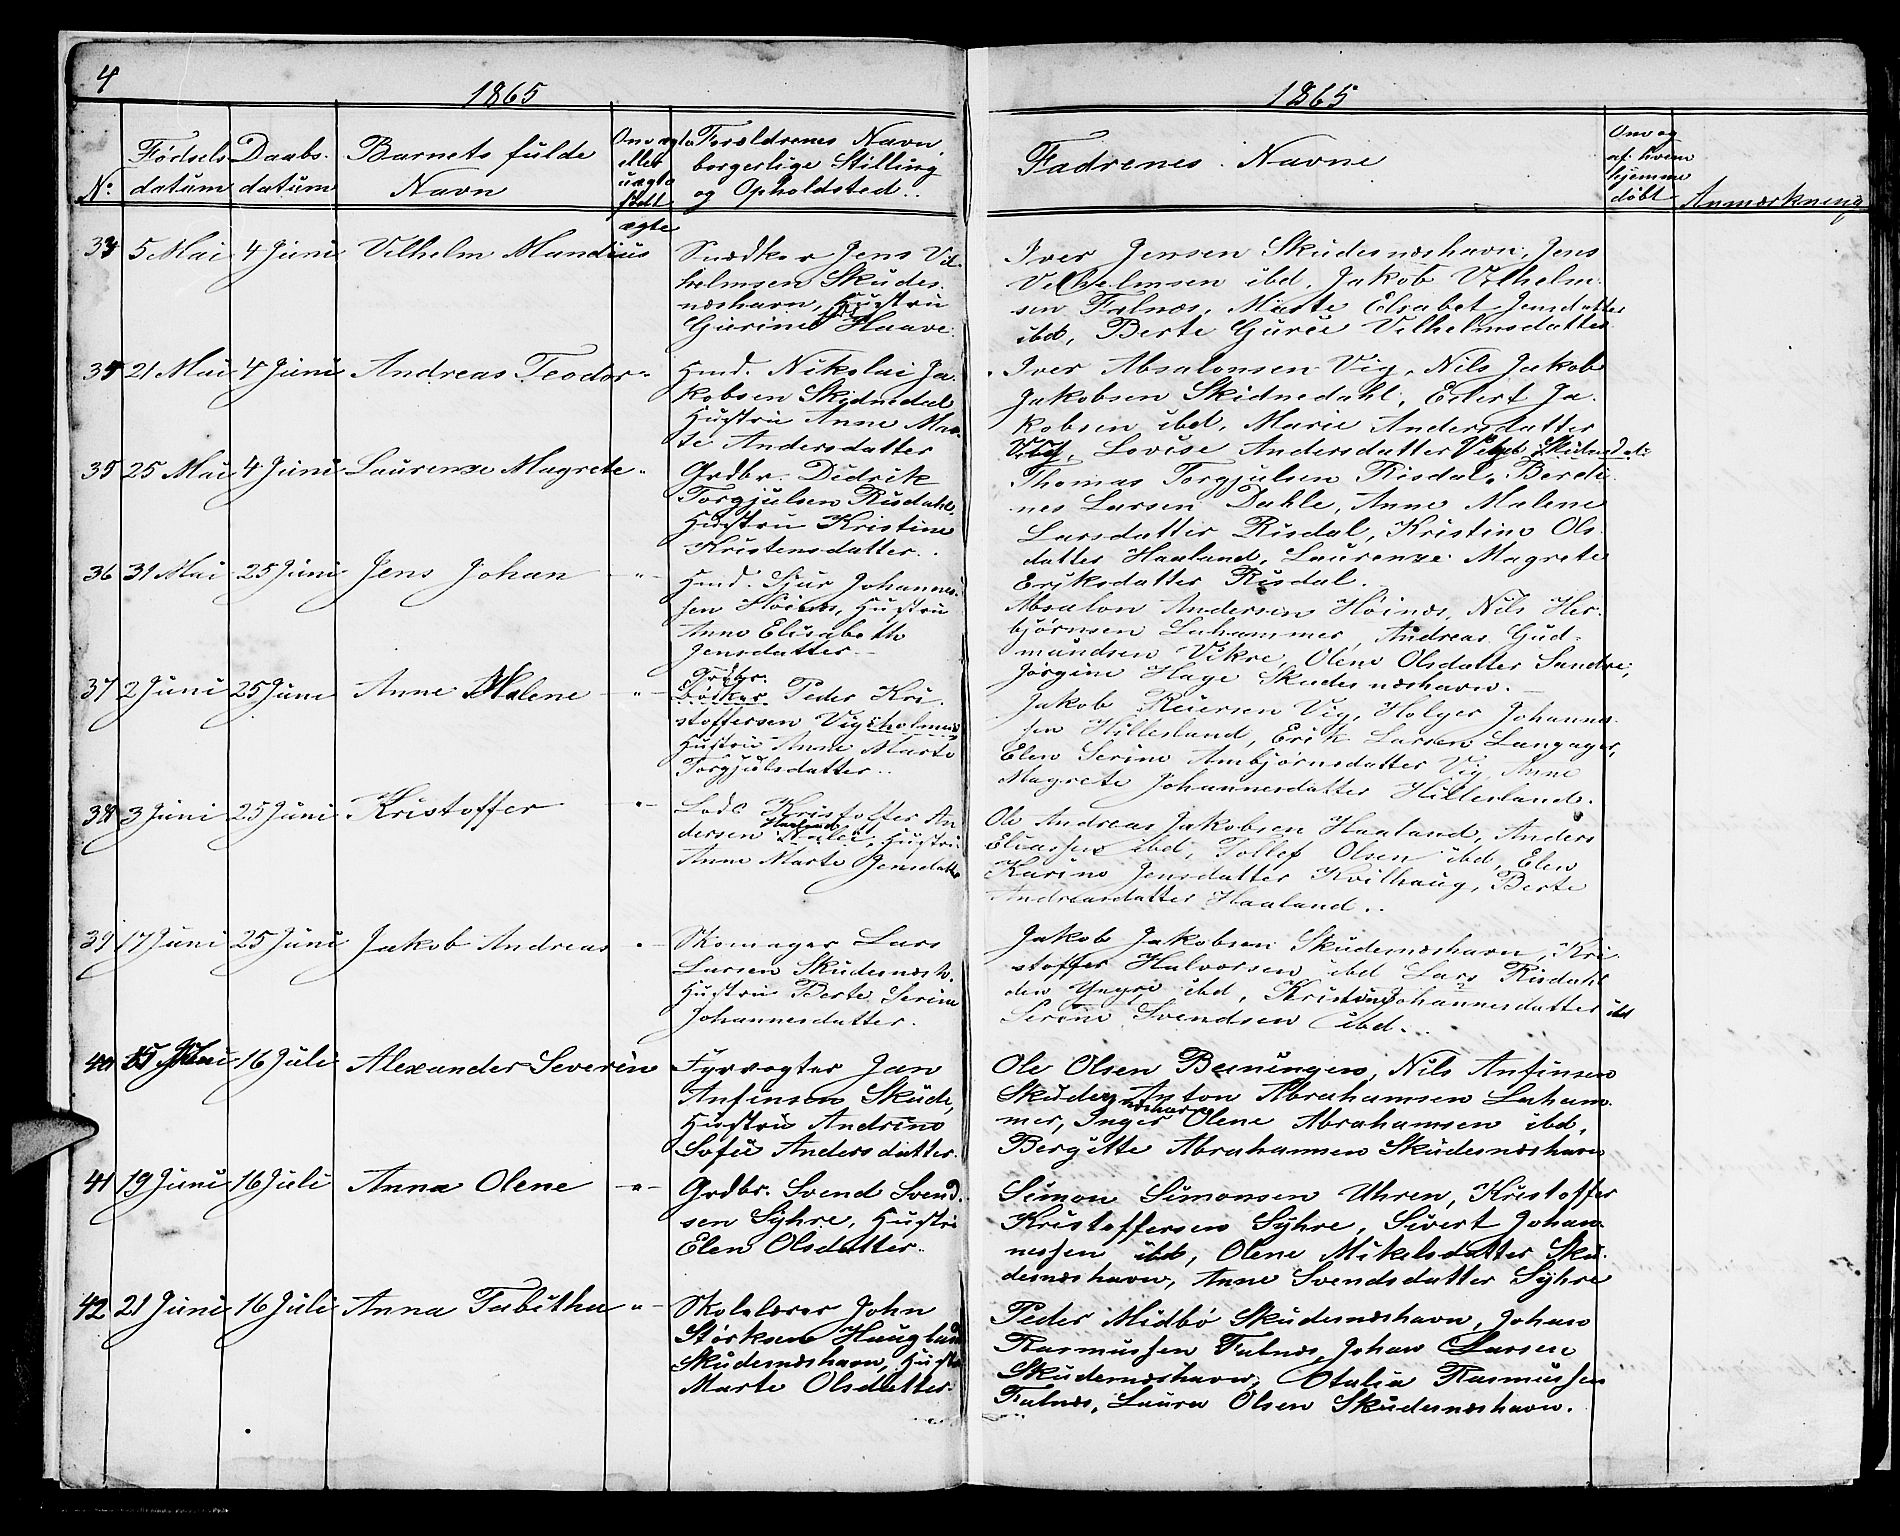 4
1865
No
Fødsels
datum
Daabs
datum
Barnets fulde
Navn
Om ægte
eller
uægte
født
Forældrenes Navn
borgerlige Stilling
og Opholdsted
ægte
33 5 Mai 4 Juni Vilhelm Mandius
Snedker Jens Vil-
helmsen Skudes
næshavn, Hustru
Gurine Haave
34 21 Mai 4 Juni Andreas Teodor "
Hmd. Nikolai Ja-
kobsen Skidnedal
Hustru Anne Mar-
te Andersdatter
35 25 Mai 4 Juni Laurenze Magrete "
Grdbr. Didrik
Torgjulsen Risdahl,
Hustru Kristine
Kristensdatter
36 31 Mai 25 Juni Jens Johan "
Hmd. Sjur Johannes-
sen Höinæs, Hustru
Anne Elisabeth
Jensdatter
37 2 Juni 25 Juni Anne Malene "
Grdbr.
Bödker Peder Kri-
stoffersen Vigsholmen
Hustru Anne Marte
Torgjulsdatter
38 3 Juni 25 Juni Kristoffer "
Lods Kristoffer An
Haaland
dersen, Hustru
Anne Marte Jensdatter
39 17 Juni 25 Juni Jakob Andreas "
Skomager Lars
Larsen Skudesnæsh.
Hustru Berte Serine
Johannesdatter.
40 15 16 Juli Alexander Severin
Fyrvogter Jan
Anfinsen Skude,
Hustru Andrine
Sofie Andersdatter.
41 19 Juni 16 Juli Anna Olene "
Grdbr. Svend Svend
sen Syhre, Hustru
Elen Olsdatter
42 21 Juni 16 Juli Anna Tabitha "
Skolelærer John
Störksen Haugland
Skudesnæshavn, Hustru
Marte Olsdatter.
1865
Fadrenes Navne
Om og
af hvem
hjemme
døbt
Anmærkning
Iver Jensen Skudesnæshavn, Jens
Vilhelmsen ibd, Jakob Vilhelm-
sen Falnæs, Marte Elsabet Jensdatter
ibd, Berte Gurie Vilhelmsdatter
Iver Absalonsen Vig, Nils Jakob
Jakobsen Skidnedahl, Edert Ja-
kobsen ibd, Marie Andersdatter
Vig, Lovise Andersdatter Skidnedal
Thomas Torgjulsen Risdal, Berdi-
nes Larsen Dahle, Anne Malene
Larsdatter Risdal, Kristine Ols
datter Haaland, Laurenze Magrete
Eriksdatter Risdal.
Absalon Andersen Höinæs, Nils Her-
bjørnsen Lahammer, Andreas Gud-
mundsen Vikre, Olene Olsdatter Sandve,
Jørgine Hage Skudesnæshavn.
Jakob Reiersen Vig, Holger Johannes-
sen Hillesland, Erik Larsen Langager,
Elen Serine Ambjørnsdatter Vig, Anne
Magrete Johannesdatter Hillesland.
Ole Andreas Jakobsen Haaland, Anders
Eliassen ibd, Tollef Olsen ibd, Elen
Karine Jensdatter Kvilhaug, Berte
Andreasdatter Haaland.
Jakob Jakobsen Skudesnæshavn, Kri
stoffer Halvorsen ibd Lars Risdahl
den Yngre ibd, Kristine Johannesdatter ibd
Serine Svendsen ibd.
Ole Olsen Beiningen, Nils Anfinsen
Skudesnæshavn Anton Abrahamsen Laham-
mer, Inger Olene Abrahamsen ibd,
Bergitte Abrahamsen Skudesnæshavn
Simon Simonsen Uhren, Kristoffer
Kristoffersen Syhre, Sivert Johan-
nessen ibd, Olene Mikelsdatter Sku-
desnæshavn, Anne Svendsdatter Syhre
Peder Midbö Skudesnæshavn, Johan
Rasmussen Falnæs, Johan Larsen
Skudesnæshavn, Otalia Rasmussen
Falnæs, Laura Olsen Skudesnæshavn.